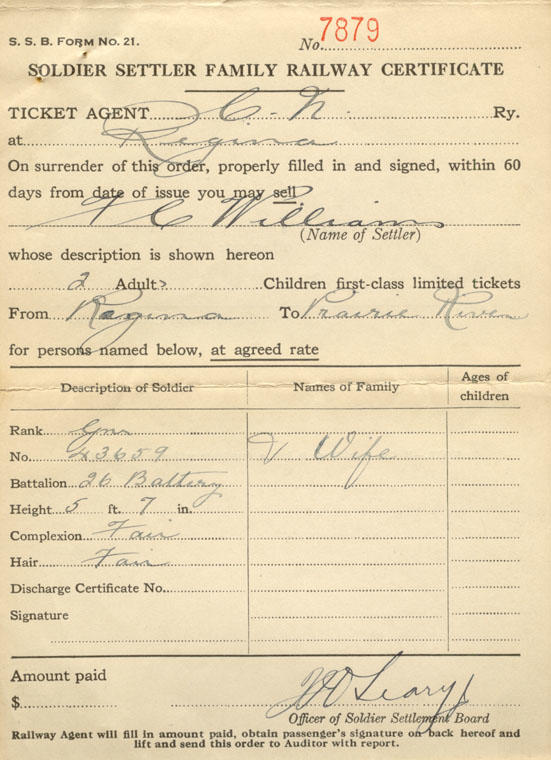 S. S. B. FORM NO. 21.
No. 7879
SOLDIER SETTLER FAMILY RAILWAY CERTIFICATE
TICKET AGENT C. N. Ry.
at Regina
On surrender of this order, properly filled in and signed, within 60
days from date of issue you may sell
F C Williams
(Name of Settler)
whose description is shown hereon
2 Adults Children first-class limited tickets
From Regina To Prairie River
for persons named below, at agreed rate
Description of Soldier Names of Family Ages of children
Rank Gnr
No. 43659 Wife
Battalion 26 Battery
Height 5 ft. 7 in.
Complexion Fair
Hair Fair
Discharge Certificate No.
Signature
Amount paid
$
Officer of Soldier Settlement Board
Railway Agent will fill in amount paid, obtain passenger's signature on back hereof and
lift and send this order to Auditor with report.